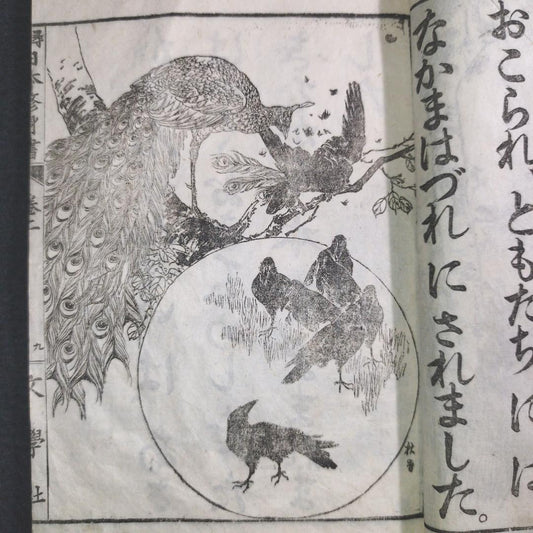 おこられ、ともだちには
なかまはづれにされました。
尋常日本修身書
巻二
九
文學社